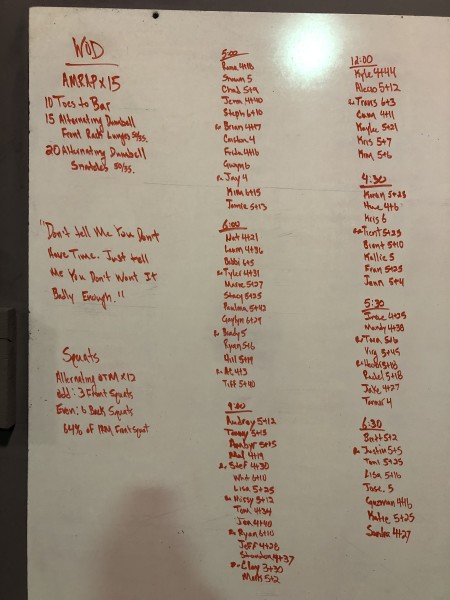 WOD
AMRAP x 15
10 Toes to Bar
15 Alternating Dumbell
Front Rack Lunges 50/35.
20 Alternating Dumbell
Snatches 50/35.
"Don't tell Me You Don't
Have Time. Just tell
Me You Don't Want It
Badly Enough."
Squats
Alternating x 12
Odd: 3 Front Squats
Even: 6 Back Squats
64% of 1RM Front Squat
5:00
4+18
Shawn 5
Chad 5+9
Jenn 4+40
Steph 6+10
Rx Brian 4+17
4
4+16
Gwyn 6
Rx Jay 4
Kim 6+15
Jamie 5+13
6:00
Nat 4+21
4+36
Bobbi 6+5
Rx Tyler 4+31
Marie 5+27
Stacy 5+25
5+42
6+29
Rx Brady 5
Ryan 5+6
Hill 5+19
4+3
Tiff 5+40
9:00
Audrey 5+12
5+15
5+15
Mal 4+19
Rx Stef 4+30
6+10
Lisa 5+25
Rx Missy 3+12
Tom 4+34
Jen 4+40
Rx Ryan 6+10
Jeff 4+28
4+37
Rx Clay 3+30
Mark 5+2
12:00
Kyle 4+44
Alecio 5+12
Rx Travis 6+3
Cam 4+11
Kaylee 5+21
Kris 5+7
Kim 5+6
4:30
Karen 5+28
4+6
Kris 6
Rx Trent 5+25
Brent 5+10
Kallie 5
Fran 5+25
Jenn 5+4
5:30
Irene 4+25
Mandy 4+38
Rx 5+16
5+45
5+18
Rachel 5+18
Jake 4+27
Turner 4
6:30
Britt 5+2
Rx Justin 5+5
Tami 5+25
Lisa 5+16
Jose 5
Guzman 4+16
Katie 5+25
Sandra 4+27